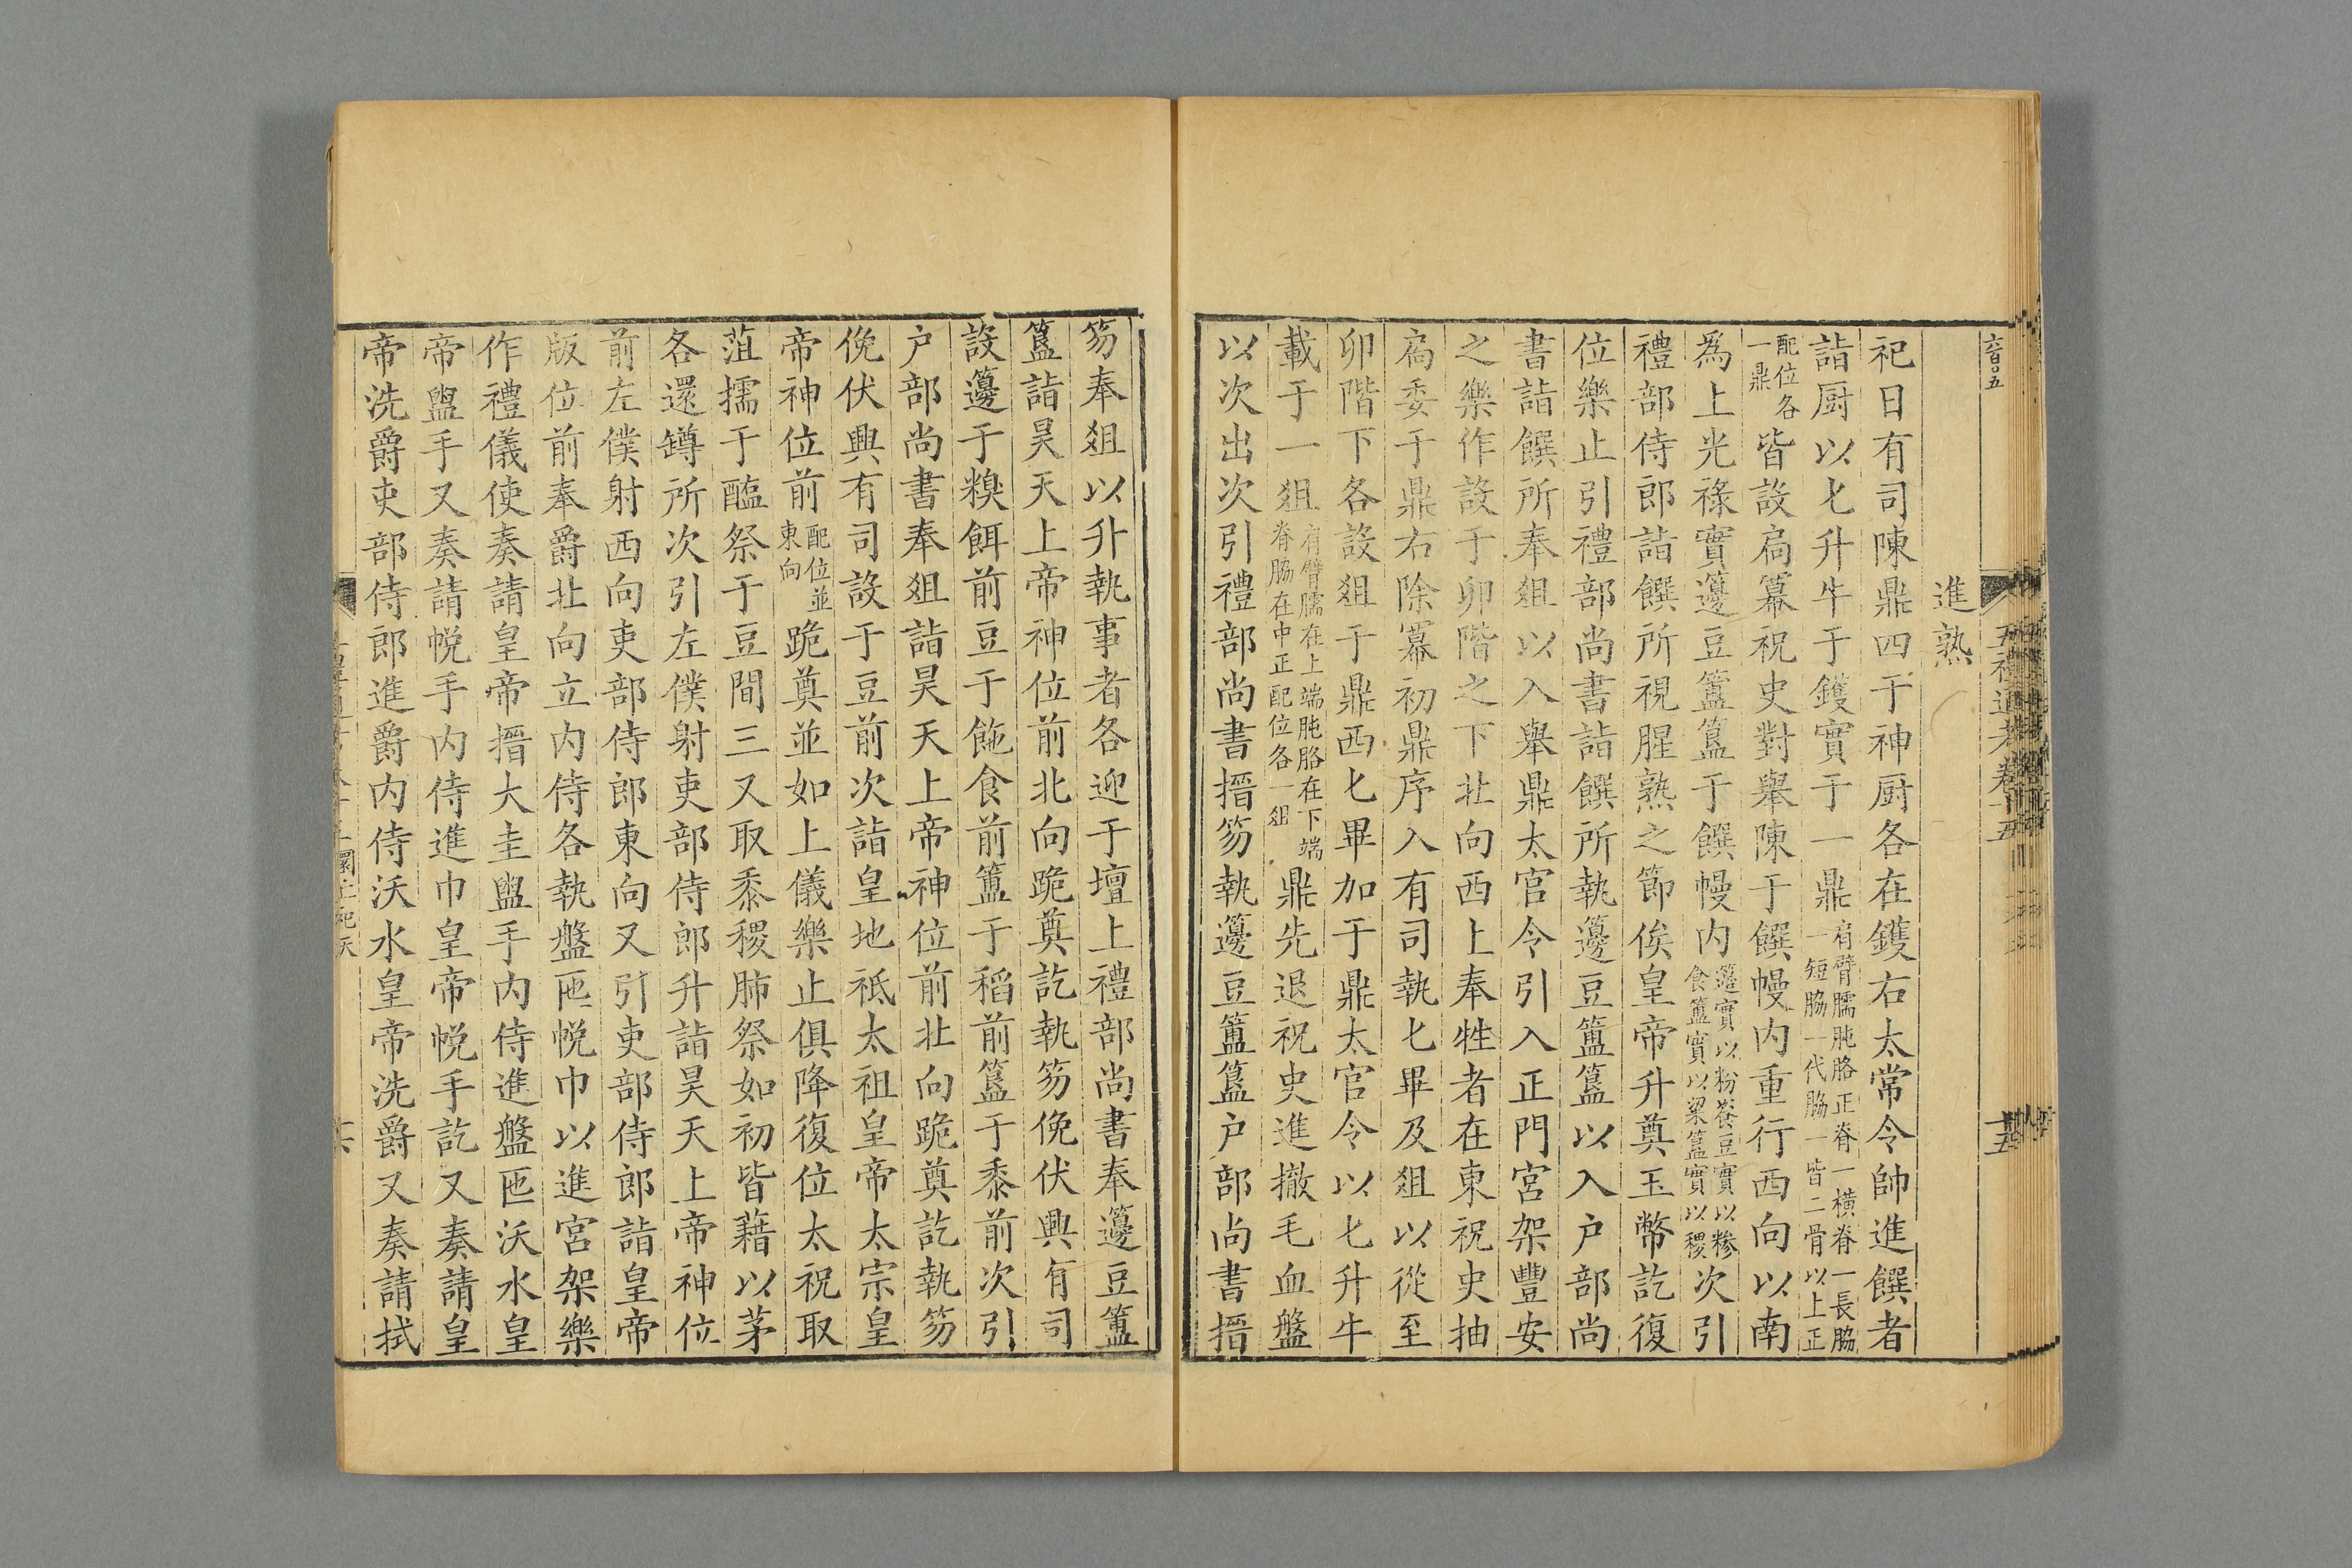 進熟
祀日有司陳鼎四于神厨各在鑊右太常令帥進饌者
詣厨以匕升牛于鑊實于一鼎肩臂臑肫胳正脊一橫脊一長脇一短脇一代脇一皆二骨以上正
配位各一鼎皆設扃冪祝史對舉陳于饌幔内重行西向以南
爲上光祿實籩豆簠簋于饌幔内籩實以粉餈豆實以糝食簠實以粱簋實以稷次引
禮部侍郎詣饌所視腥熟之節俟皇帝升奠玉幣訖復
位樂止引禮部尚書詣饌所執籩豆簠簋以入户部尚
書詣饌所奉俎以入舉鼎太官令引入正門宮架豐安
之樂作設于卯階之下北向西上奉牲者在東祝史抽
扃委于鼎右除冪初鼎序入有司執匕畢及俎以從至
卯階下各設俎于鼎西匕畢加于鼎太官令以匕升牛
載于一俎肩臂臑在上端肫胳在下端脊脇在中正配位各一俎鼎先退祝史進撤毛血盤
以次出次引禮部尚書搢笏執籩豆簠簋户部尚書搢
笏奉俎以升執事者各迎于壇上禮部尚書奉籩豆簠
簋詣昊天上帝神位前北向跪奠訖執笏俛伏興有司
設籩于糗餌前豆于飿食前簠于稻前簋于黍前次引
户部尚書奉俎詣昊天上帝神位前北向跪奠訖執笏
俛伏興有司設于豆前次詣皇地祇太祖皇帝太宗皇
帝神位前配位並東向跪奠並如上儀樂止俱降復位太祝取
菹擩于醢祭于豆間三又取黍稷肺祭如初皆藉以茅
各還罇所次引左僕射吏部侍郎升詣昊天上帝神位
前左僕射西向吏部侍郎東向又引吏部侍郎詣皇帝
版位前奉爵北向立内侍各執盤匜帨巾以進宮架樂
作禮儀使奏請皇帝搢大圭盥手内侍進盤匜沃水皇
帝盥手又奏請帨手内侍進巾皇帝帨手訖又奏請皇
帝洗爵吏部侍郎進爵内侍沃水皇帝洗爵又奏請拭